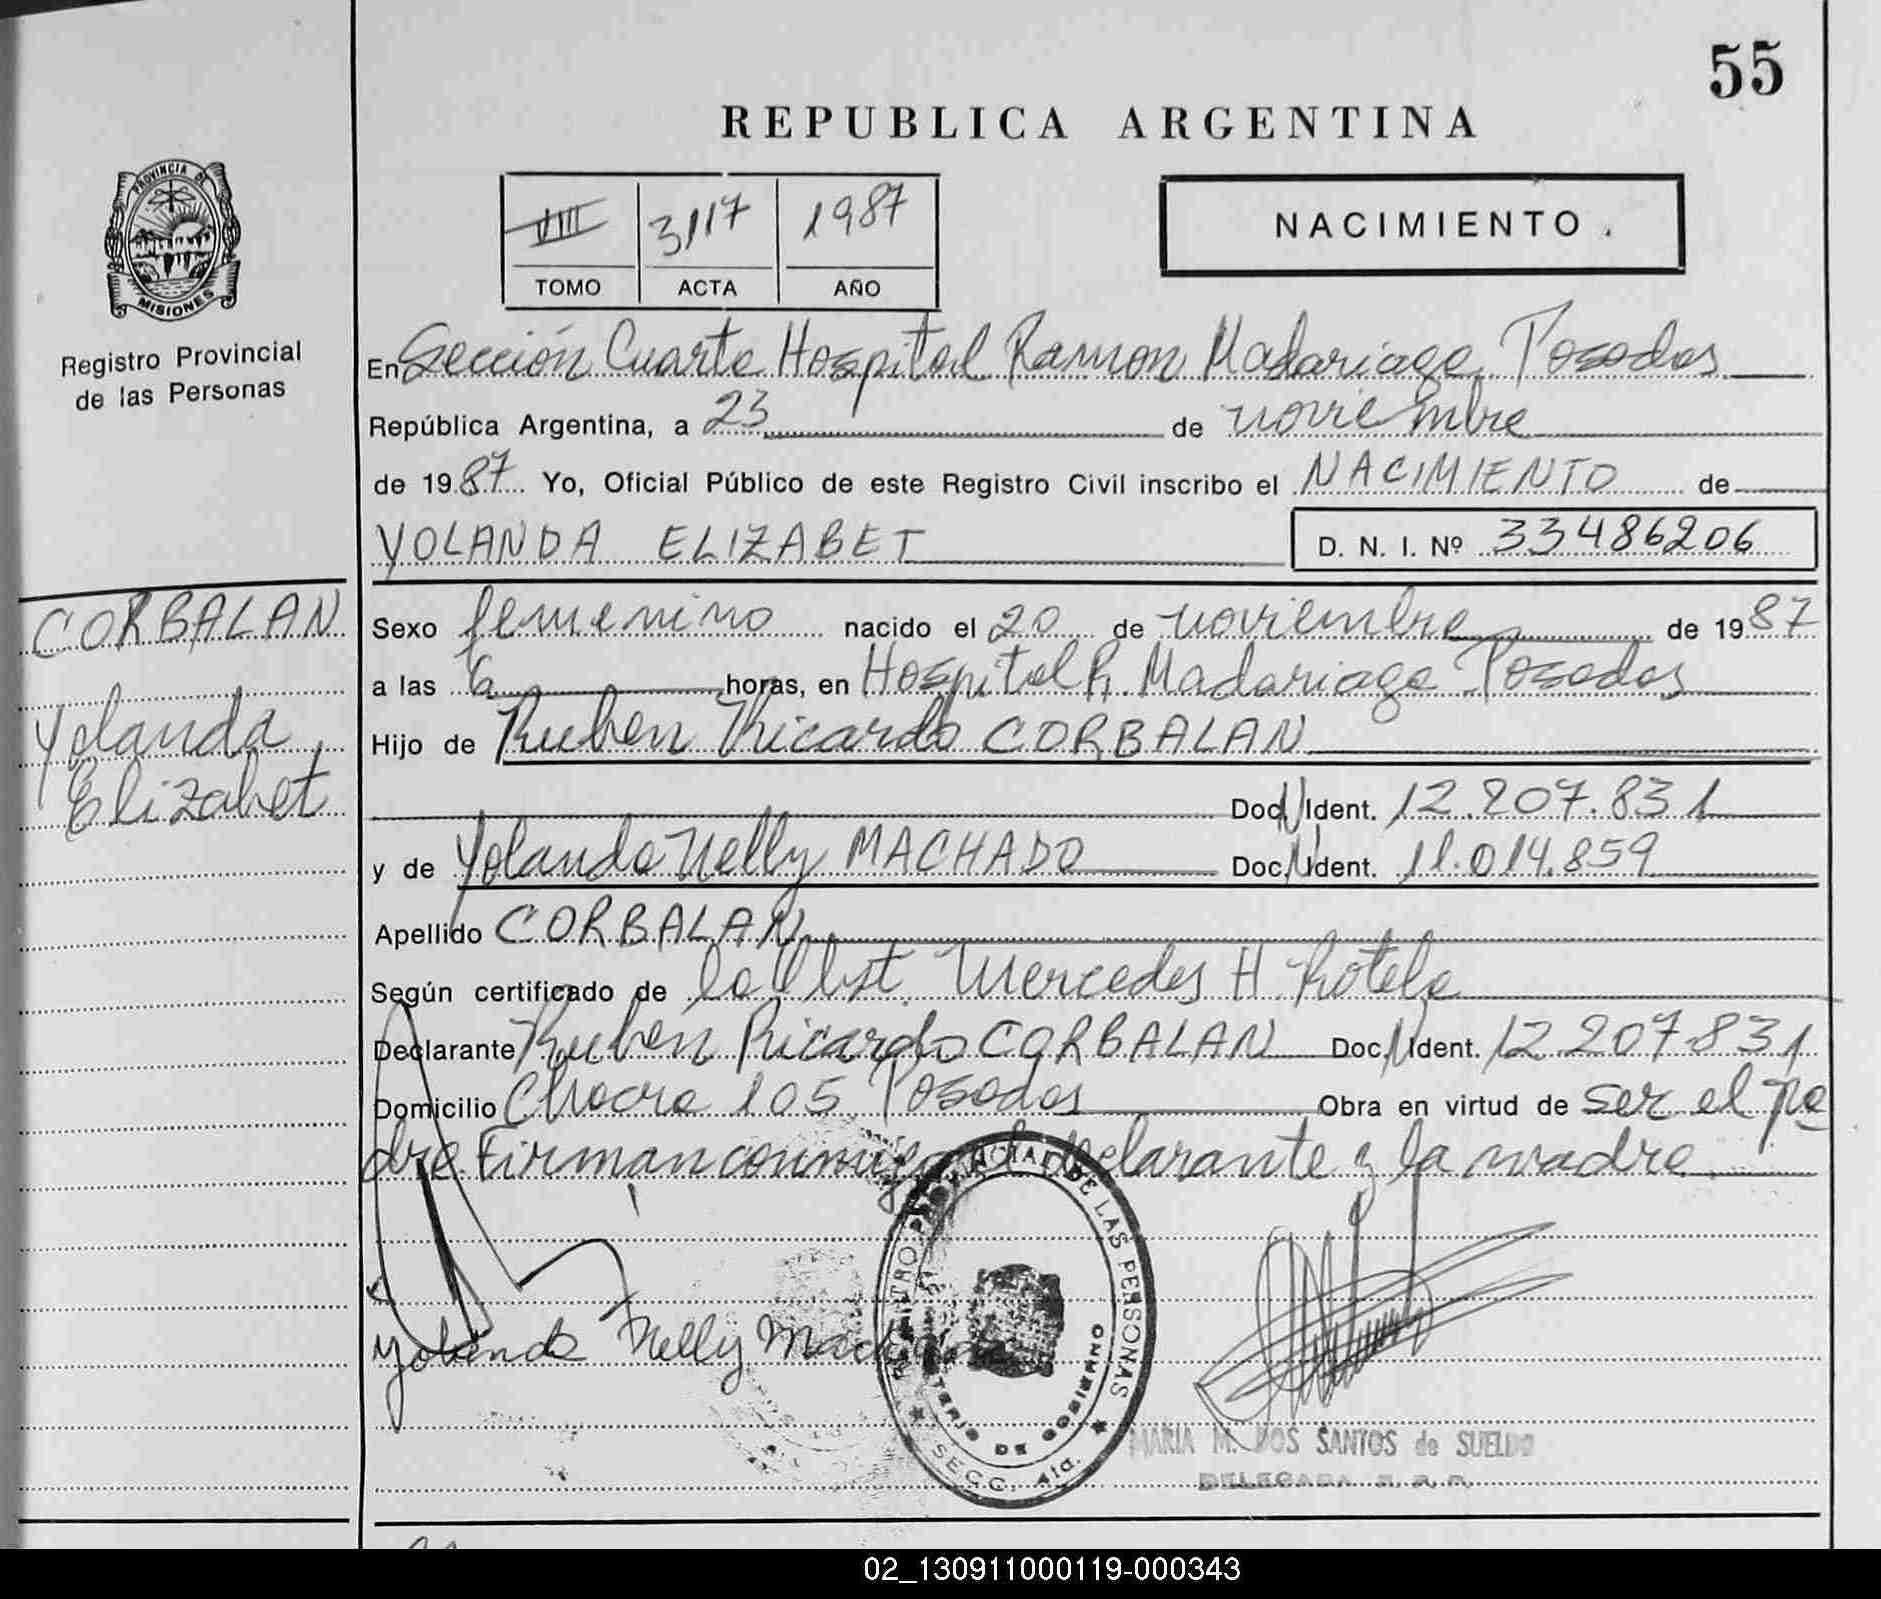 55
REPUBLICA ARGENTINA
VIII 3117 1987
TOMO ACTA AÑO
NACIMIENTO.
PROVINCIA DE
MISIONES
Registro Provincial
de las Personas
En Sección Cuarta Hospital Ramon Madariaga Posadas
República Argentina, a 23 de noviembre
de 1987 Yo, Oficial Público de este Registro Civil inscribo el NACIMIENTO de
YOLANDA ELIZABET
D. N. I. Nº 33486206
CORBALAN
Yolanda
Elizabet
Sexo femenino nacido el 20 de noviembre de 1987
a las 6 horas, en Hospital R. Madariaga Posadas
Hijo de Ruben Ricardo CORBALAN
Doc. N Ident. 12.207.831
y de Yolanda Nelly MACHADO Doc. N Ident. 11.014.859
Apellido CORBALAN
Según certificado de la Obst. Mercedes H. Rotela
Declarante Rubén Ricardo CORBALAN Doc. N Ident. 12.207.831
Domicilio Chacra 105 Posadas Obra en virtud de ser el pa
dre. Firman conmigo el declarante y la madre.
Yolanda Nelly Machado
REGISTRO PROVINCIAL DE LAS PERSONAS
MINISTERIO DE GOBIERNO
SECC. 4ta.
MARIA M. DOS SANTOS de SUELDO
DELEGADA R. P. P.
02_130911000119-000343